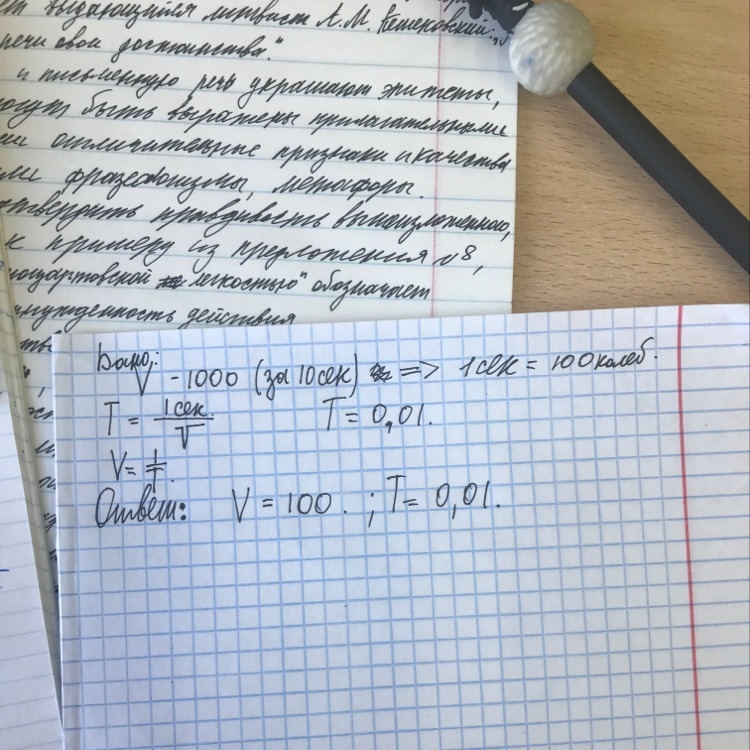 выдающийся лингвист А.М. Пешковский:
речи свои достоинства."
и письменную речь украшают эпитеты,
могут быть выражены прилагательными
отличительные признаки и качества
фразеологизмы, метафоры.
подтвердить правдивость вышеизложенного,
к примеру из предложения №8,
легкостью" обозначает
действия
Дано:
V - 1000 (за 10 сек) => 1 сек = 100 колеб.
T = 1 сек. / V T = 0,01.
V = 1/T.
Ответ: V = 100. ; T = 0,01.